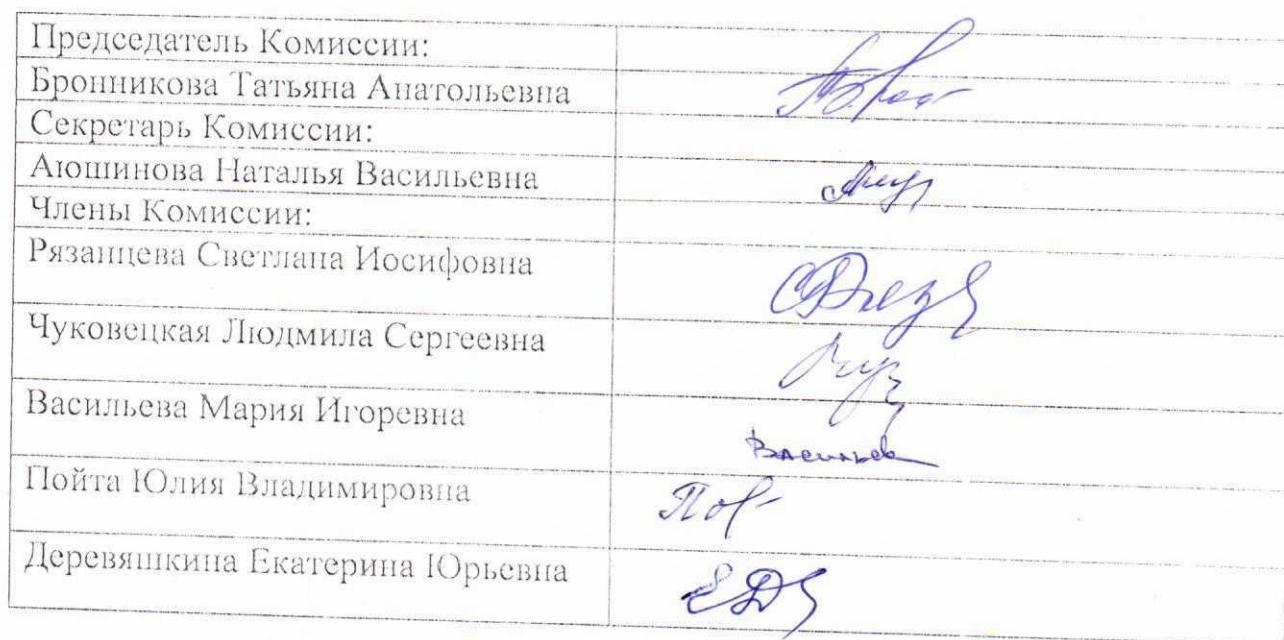 Председатель Комиссии:
Бронникова Татьяна Анатольевна
Секретарь Комиссии:
Аюшинова Наталья Васильевна
Члены Комиссии:
Рязанцева Светлана Иосифовна
Чуковецкая Людмила Сергеевна
Васильева Мария Игоревна
Пойта Юлия Владимировна
Деревяшкина Екатерина Юрьевна